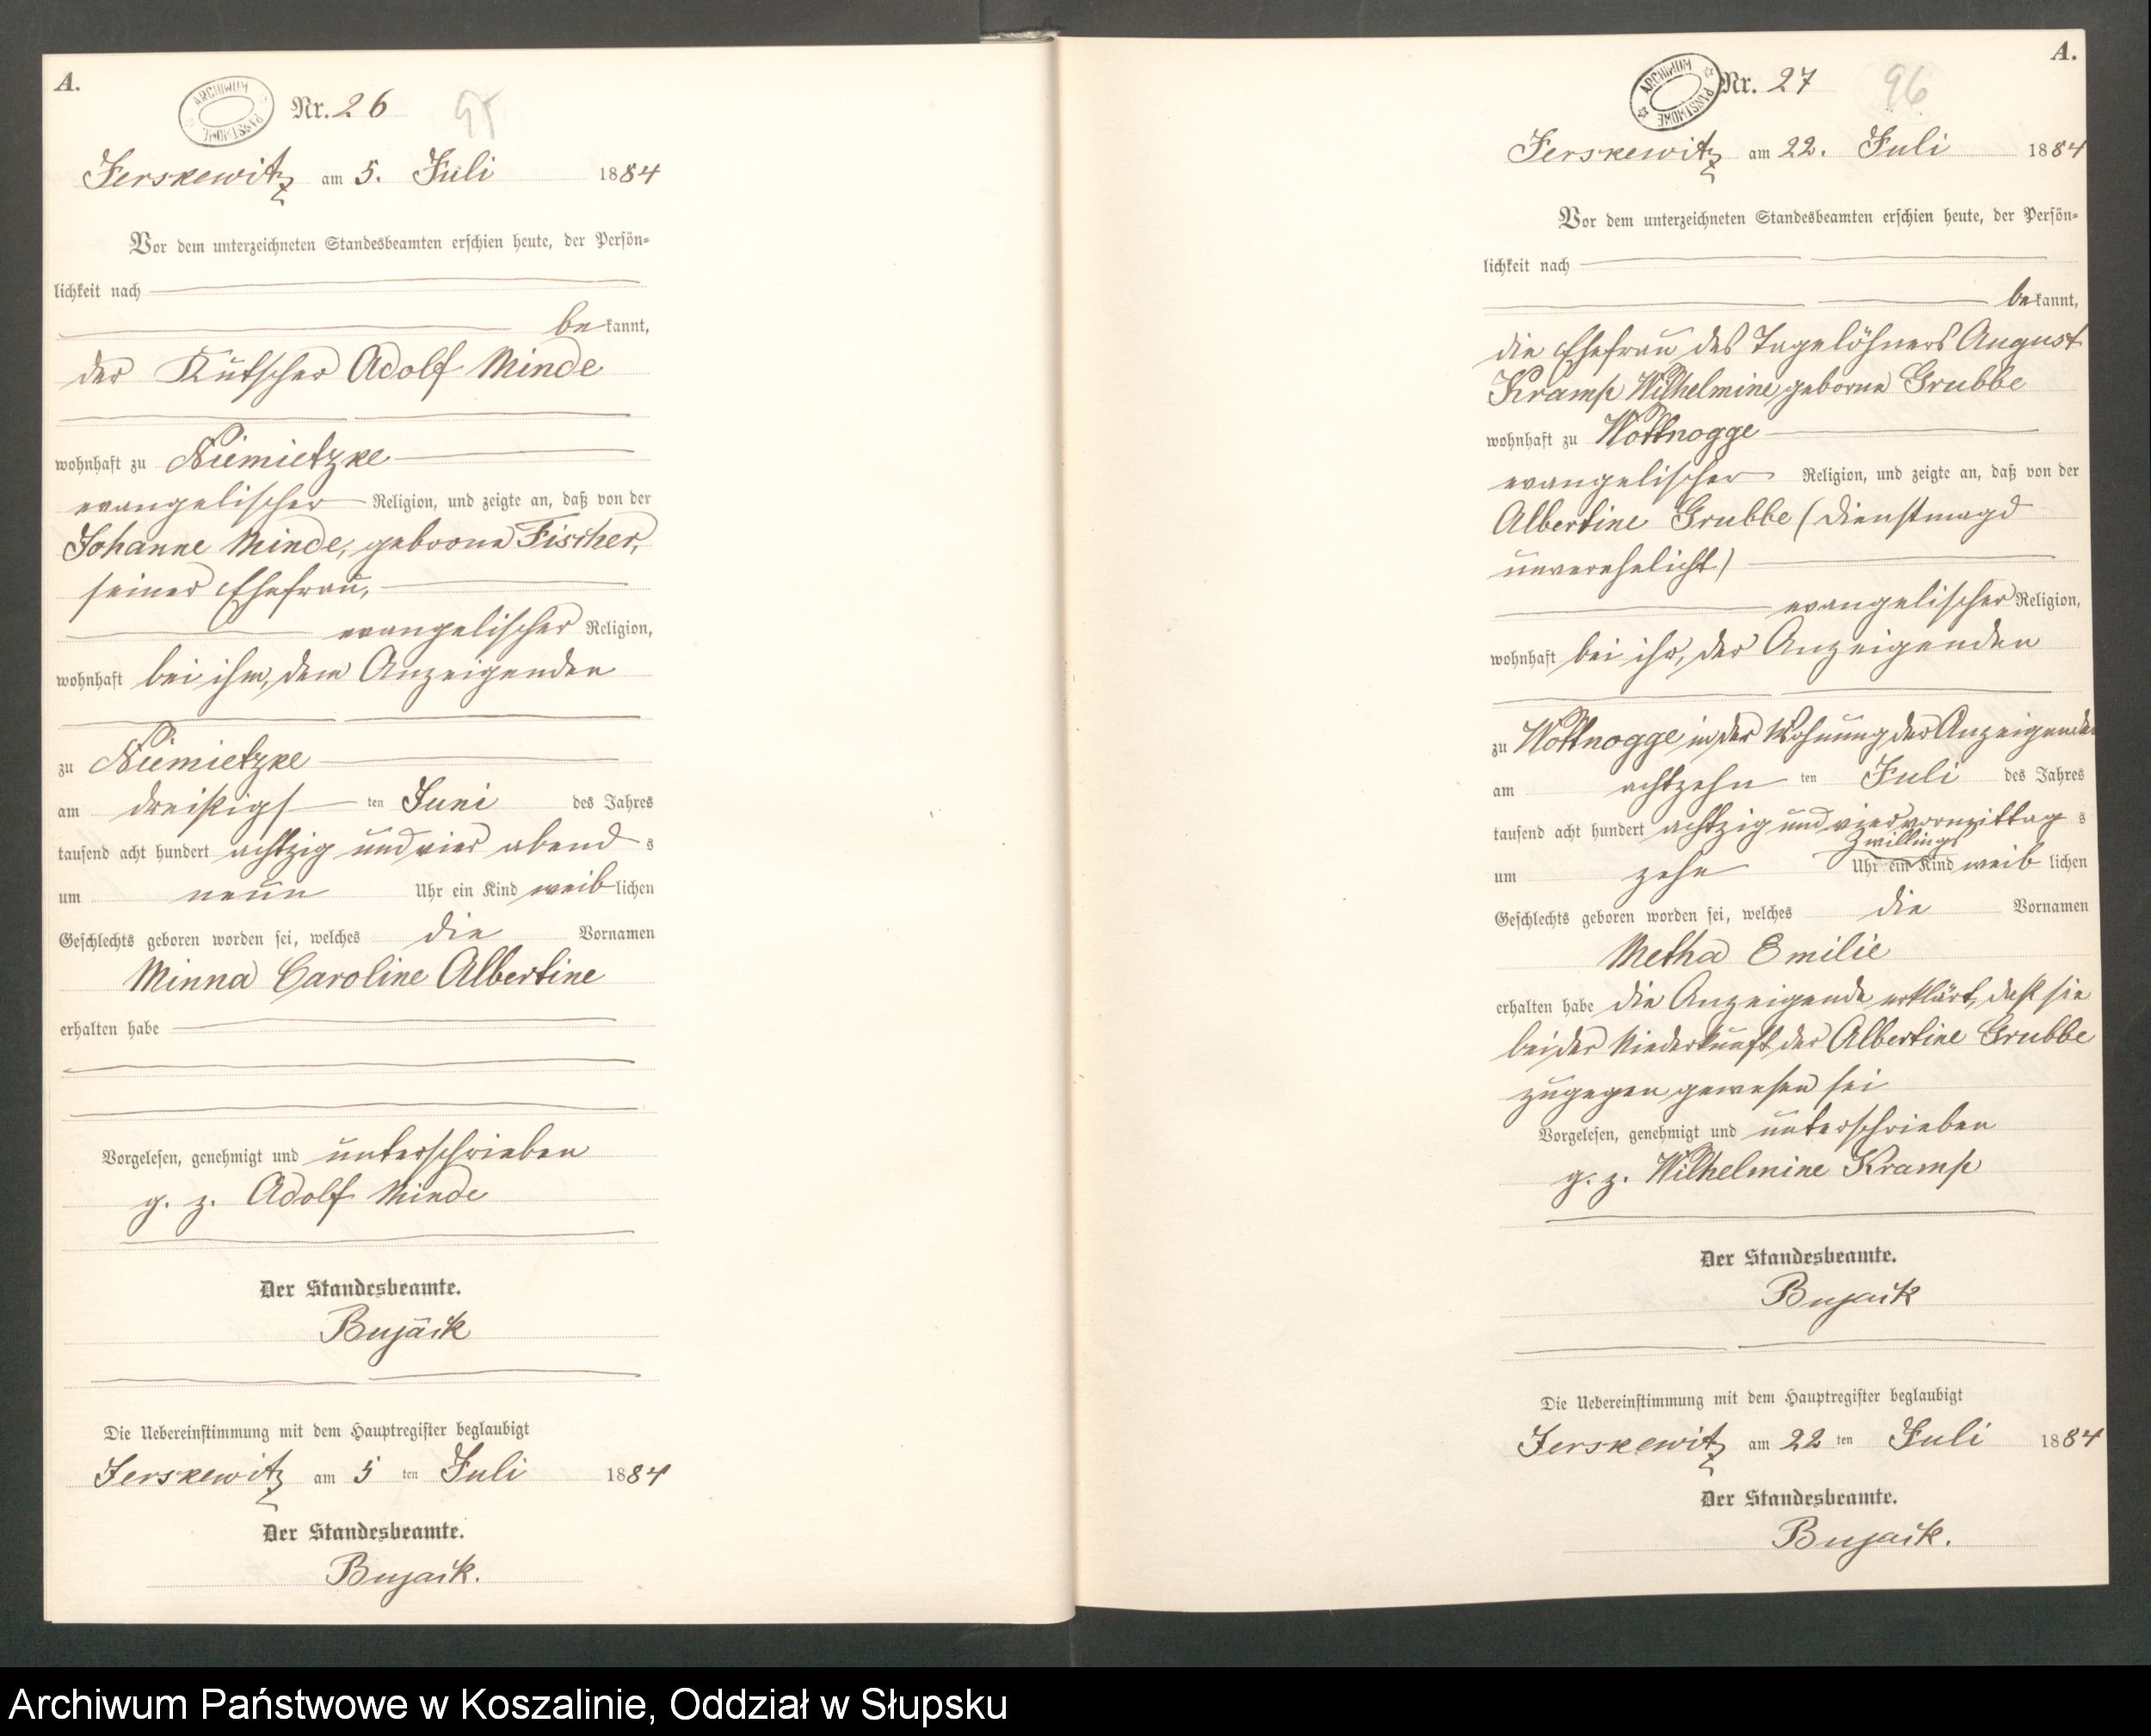 A.
ARCHIWUM PAŃSTWOWE
Nr. 26
95
Jerskewitz am 5. Juli 1884
Vor dem unterzeichneten Standesbeamten erschien heute, der Persön-
lichkeit nach
bekannt,
der Kutscher Adolf Minde
wohnhaft zu Niemietzke
evangelischer Religion, und zeigte an, daß von der
Johanne Minde, geborne Fischer,
seiner Ehefrau,
evangelischer Religion,
wohnhaft bei ihm, dem Anzeigenden
zu Niemietzke
am dreißigsten Juni des Jahres
tausend acht hundert achtzig und vier abends
um neun Uhr ein Kind weiblichen
Geschlechts geboren worden sei, welches die Vornamen
Minna Caroline Albertine
erhalten habe
Vorgelesen, genehmigt und unterschrieben
g. z. Adolf Minde
Der Standesbeamte.
Bujack
Die Uebereinstimmung mit dem Hauptregister beglaubigt
Jerskewitz am 5 ten Juli 1884
Der Standesbeamte.
Bujack.
A.
ARCHIWUM PAŃSTWOWE
Nr. 27
96
Jerskewitz am 22. Juli 1884
Vor dem unterzeichneten Standesbeamten erschien heute, der Persön-
lichkeit nach
bekannt,
die Ehefrau des Tagelöhners August
Kramp Wilhelmine geborne Grubbe
wohnhaft zu Wottnogge
evangelischer Religion, und zeigte an, daß von der
Albertine Grubbe (Dienstmagd
unverehelicht)
evangelischer Religion,
wohnhaft bei ihr, der Anzeigenden
zu Wottnogge in der Wohnung der Anzeigenden
am achtzehnten Juli des Jahres
tausend acht hundert achtzig und vier vormittags
Zwillings
um zehn Uhr ein Kind weiblichen
Geschlechts geboren worden sei, welches die Vornamen
Metha Emilie
erhalten habe die Anzeigende erklärt, daß sie
bei der Niederkunft der Albertine Grubbe
zugegen gewesen sei
Vorgelesen, genehmigt und unterschrieben
g. z. Wilhelmine Kramp
Der Standesbeamte.
Bujack
Die Uebereinstimmung mit dem Hauptregister beglaubigt
Jerskewitz am 22 ten Juli 1884
Der Standesbeamte.
Bujack.
Archiwum Państwowe w Koszalinie, Oddział w Słupsku